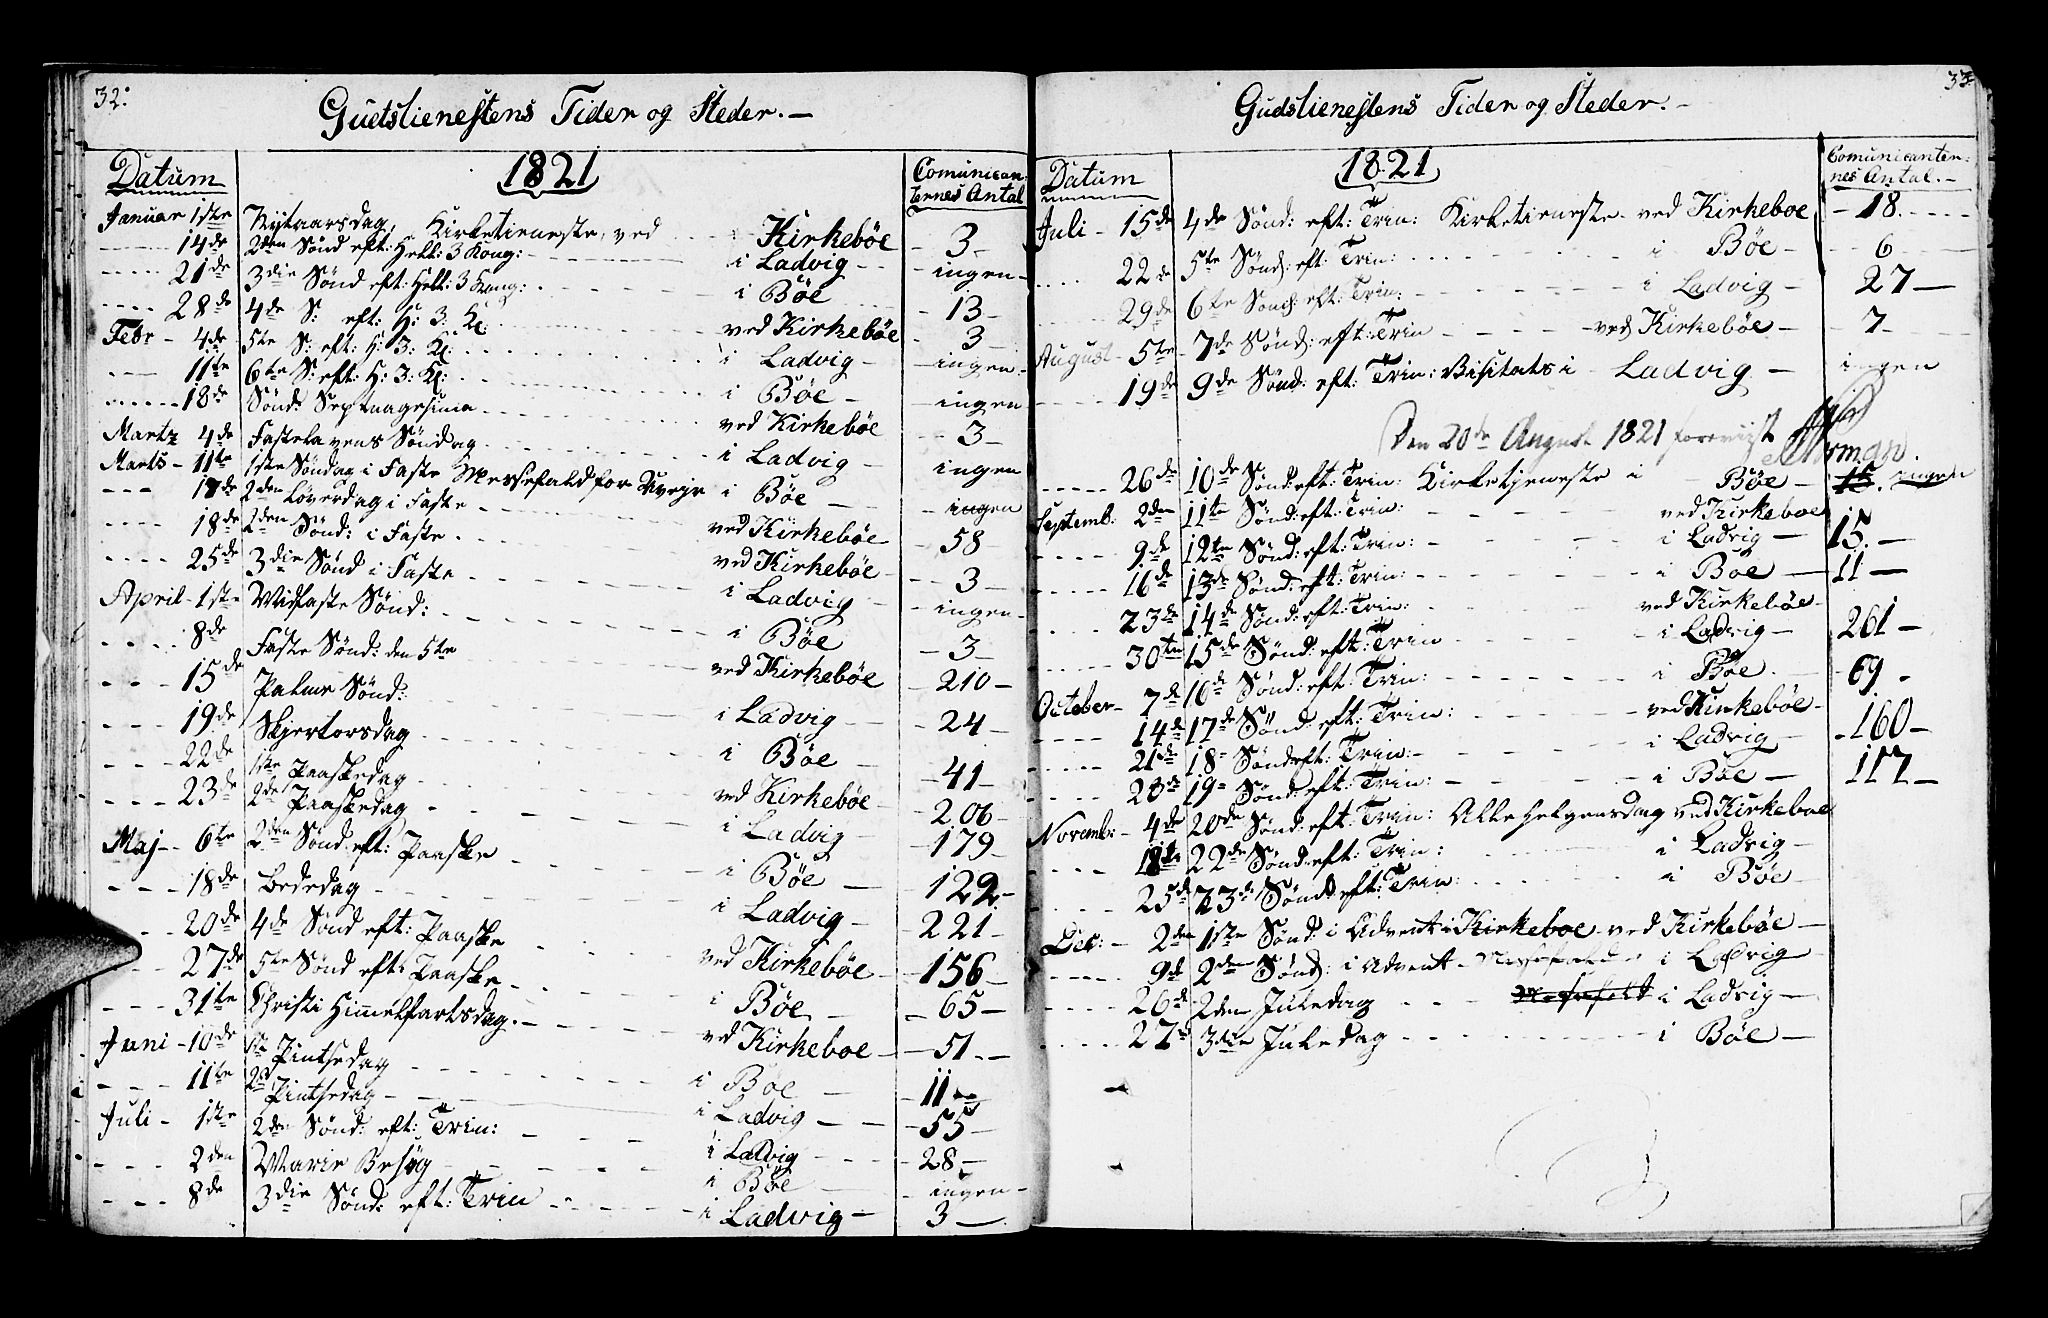 32:
Gudstienestens Tider og Steder. —
Datum 1821 Comunican-
ternes Antal
Januar 1ste Nytaarsdag, Kirketieneste, ved Kirkebøe - 3 -
14de 2den Sønd eft: Hell: 3 Kong: i Ladvig - ingen -
21de 3die Sønd eft: Hell: 3 Kong: i Bøe
28de 4de S: eft: H: 3: K: ved Kirkebøe - 13 -
Febr - 4de 5te S: eft: H: 3: K: i Ladvig - 3 -
11te 6te S: eft: H: 3: K: i Bøe - ingen -
18de Sønd: Septuagesima ved Kirkebøe ingen
Martz 4de Fastelavens Søndag i Ladvig - 3 -
Marts - 11te 1ste Søndag i Faste Messefald for Uvejr i Bøe ingen
17de 2den Løverdag i Faste ved Kirkebøe - ingen
18de 2den Sønd: i Faste ved Kirkebøe - 58
25de 3die Sønd i Faste i Ladvig - 3 -
April - 1ste Midfaste Sønd: i Bøe - ingen -
8de Faste Sønd: den 5te ved Kirkebøe - 3 -
15de Palme Sønd: i Ladvig - 210 -
19de Skjertorsdag i Bøe - 24 -
22de 1ste Paaskedag ved Kirkebøe - 41 -
23de 2de Paaskedag i Ladvig - 206 -
Maj - 6te 2den Sønd eft: Paaske i Bøe - 179 -
18de Bededag i Ladvig - 122 -
20de 4de Sønd eft: Paaske ved Kirkebøe - 221 -
27de 5te Sønd eft: Paaske i Bøe - 156 -
31te Christi Himmelfartsdag. ved Kirkeboe - 65 -
Juni - 10de 1ste Pintsedag i Boe - 51 -
11te 2de Pintsedag i Ladvig - 11 -
Juli - 1ste 2den Sønd: eft: Trin: i Ladvig - 55 -
2den Marie Besøg i Bøe - 28 -
8de 3die Sønd: eft: Trin i Ladvig - ingen -
3 -
33
Gudstienestens Tider og Steder. -
Datum 1821 Comunicanter-
nes Antal. -
Juli - 15de 4de Sønd: eft: Trin: Kirketieneste ved Kirkeboe - 18
22de 5te Sønd: eft: Trin: i Bøe - 6
29de 6te Sønd: eft: Trin: i Ladvig - 27 -
August - 5te 7de Sønd: eft: Trin ved Kirkebøe - 7 -
19de 9de Sønd: eft: Trin: Visitats i Ladvig - ingen
Den 20de August 1821 foreviist
26de 10de Sønd: eft: Trin: Kirketjeneste i Bøe - 15. ingen
Septemb: 2den 11te Sønd: eft: Trin: ved Kirkeboe
9de 12te Sønd: eft: Trin: i Ladvig - 15. -
16de 13de Sønd: eft: Trin: i Boe - 11 -
23de 14de Sønd: eft: Trin: ved Kirkebøe -
30te 15de Sønd: eft: Trin i Ladvig - 261 -
October - 7de 16de Sønd: eft: Trin: i Bøe - 69 -
14de 17de Sønd: eft: Trin: ved Kirkebøe - 160 -
21de 18 - Sønd eft: Trin: - i Ladvig - 117 -
28de 19 - Sønd: eft: Trin: i Bøe -
Novemb: - 4de 20de Sønd: eft: Trin: Alle Helgensdag ved Kirkeboe
18te 22de Sønd: eft: Trin: i Ladvig -
25de 23de Sønd: eft: Trin: i Bøe
Dec: - 2den 1ste Sønd: i Advent i Kirkeboe ved Kirkebøe -
9de 2den Sønd: i Advent - Messefald - i Ladvig
26de 2den Juledag Messefald i Ladvig -
27de 3die Juledag i Bøe -